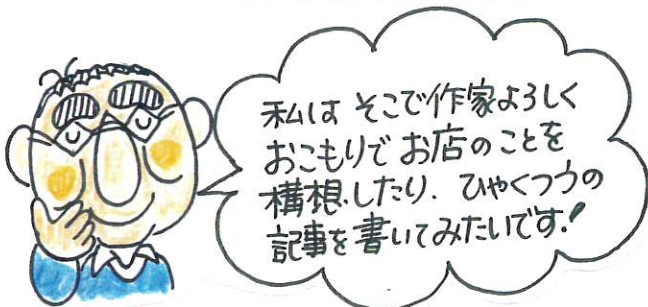 私は そこで作家よろしく
おこもりで お店のことを
構想したり、ひゃくつうの
記事を書いてみたいです!